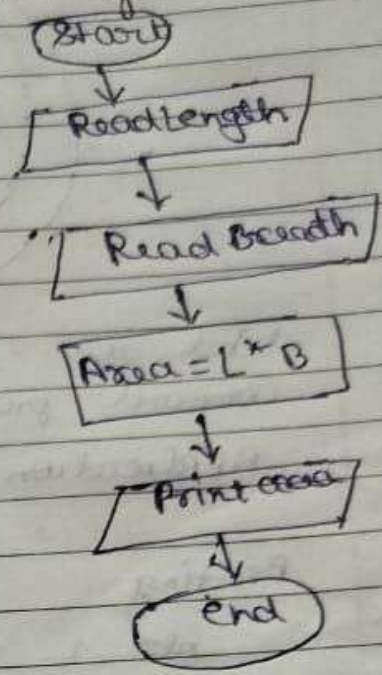 Start
Read Length
Read Breadth
Area = L * B
Print area
end